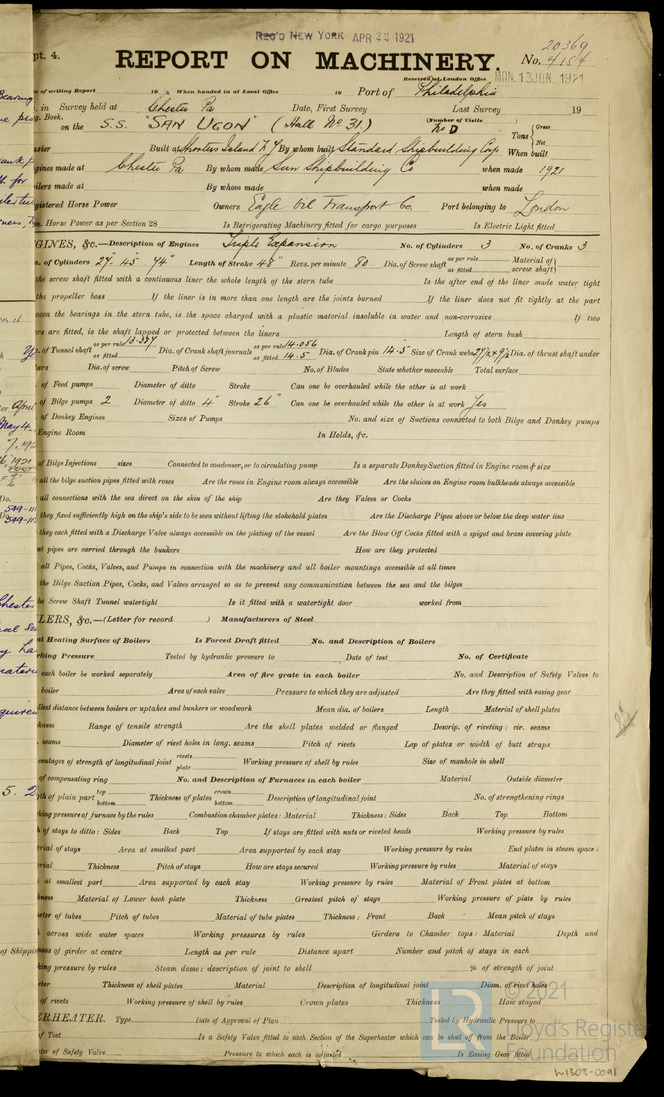 Rec'd NEW YORK APR 22 1921
pt. 4.
REPORT ON MACHINERY.
20369
No. 4154
Received at London Office MON. 13 JUN. 1921
of writing Report 19 When handed in at Local Office 19 Port of Philadelphia
in Survey held at Chester Pa Date, First Survey Last Survey 19
Book. (Number of Visits
on the S.S. "SAN UGON" (Hull No 31.) Tons Gross Net
aster Built at Shooters Island N.Y By whom built Standard Shipbuilding Corp When built
gines made at Chester Pa By whom made Sun Shipbuilding Co when made 1921
ilers made at By whom made when made
gistered Horse Power Owners Eagle Oil Transport Co. Port belonging to London
. Horse Power as per Section 28 Is Refrigerating Machinery fitted for cargo purposes Is Electric Light fitted
GINES, &c.—Description of Engines Triple Expansion No. of Cylinders 3 No. of Cranks 3
. of Cylinders 27" 45" 74" Length of Stroke 48" Revs. per minute 80 Dia. of Screw shaft as per rule as fitted Material of screw shaft
the screw shaft fitted with a continuous liner the whole length of the stern tube Is the after end of the liner made water tight
the propeller boss If the liner is in more than one length are the joints burned If the liner does not fit tightly at the part
ween the bearings in the stern tube, is the space charged with a plastic material insoluble in water and non-corrosive If two
rs are fitted, is the shaft lapped or protected between the liners Length of stern bush
. of Tunnel shaft as per rule 13.387 as fitted Dia. of Crank shaft journals as per rule 14.056 as fitted 14.5 Dia. of Crank pin 14.5 Size of Crank webs Dia. of thrust shaft under
lars Dia. of screw Pitch of Screw No. of Blades State whether moveable Total surface
. of Feed pumps Diameter of ditto Stroke Can one be overhauled while the other is at work
. of Bilge pumps 2 Diameter of ditto 4" Stroke 26" Can one be overhauled while the other is at work Yes
of Donkey Engines Sizes of Pumps No. and size of Suctions connected to both Bilge and Donkey pumps
Engine Room In Holds, &c.
of Bilge Injections sizes Connected to condenser, or to circulating pump Is a separate Donkey Suction fitted in Engine room & size
all the bilge suction pipes fitted with roses Are the roses in Engine room always accessible Are the sluices on Engine room bulkheads always accessible
all connections with the sea direct on the skin of the ship Are they Valves or Cocks
they fixed sufficiently high on the ship's side to be seen without lifting the stokehold plates Are the Discharge Pipes above or below the deep water line
they each fitted with a Discharge Valve always accessible on the plating of the vessel Are the Blow Off Cocks fitted with a spigot and brass covering plate
at pipes are carried through the bunkers How are they protected
all Pipes, Cocks, Valves, and Pumps in connection with the machinery and all boiler mountings accessible at all times
the Bilge Suction Pipes, Cocks, and Valves arranged so as to prevent any communication between the sea and the bilges
he Screw Shaft Tunnel watertight Is it fitted with a watertight door worked from
LERS, &c.—(Letter for record ) Manufacturers of Steel
al Heating Surface of Boilers Is Forced Draft fitted No. and Description of Boilers
rking Pressure Tested by hydraulic pressure to Date of test No. of Certificate
each boiler be worked separately Area of fire grate in each boiler No. and Description of Safety Valves to
boiler Area of each valve Pressure to which they are adjusted Are they fitted with easing gear
llest distance between boilers or uptakes and bunkers or woodwork Mean dia. of boilers Length Material of shell plates
kness Range of tensile strength Are the shell plates welded or flanged Descrip. of riveting: cir. seams
. seams Diameter of rivet holes in long. seams Pitch of rivets Lap of plates or width of butt straps
centages of strength of longitudinal joint rivets plate Working pressure of shell by rules Size of manhole in shell
of compensating ring No. and Description of Furnaces in each boiler Material Outside diameter
gth of plain part top bottom Thickness of plates crown bottom Description of longitudinal joint No. of strengthening rings
king pressure of furnace by the rules Combustion chamber plates: Material Thickness: Sides Back Top Bottom
h of stays to ditto: Sides Back Top If stays are fitted with nuts or riveted heads Working pressure by rules
erial of stays Area at smallest part Area supported by each stay Working pressure by rules End plates in steam space:
rial Thickness Pitch of stays How are stays secured Working pressure by rules Material of stays
at smallest part Area supported by each stay Working pressure by rules Material of Front plates at bottom
kness Material of Lower back plate Thickness Greatest pitch of stays Working pressure of plate by rules
meter of tubes Pitch of tubes Material of tube plates Thickness: Front Back Mean pitch of stays
h across wide water spaces Working pressures by rules Girders to Chamber tops: Material Depth and
kness of girder at centre Length as per rule Distance apart Number and pitch of stays in each
king pressure by rules Steam dome: description of joint to shell % of strength of joint
eter Thickness of shell plates Material Description of longitudinal joint Diam. of rivet holes
of rivets Working pressure of shell by rules Crown plates Thickness How stayed
ERHEATER. Type Date of Approval of Plan Tested by Hydraulic Pressure to
of Test Is a Safety Valve fitted to each Section of the Superheater which can be shut off from the Boiler
ter of Safety Valve Pressure to which each is adjusted Is Easing Gear fitted
© 2021
Lloyd's Register
Foundation
W1303-0091